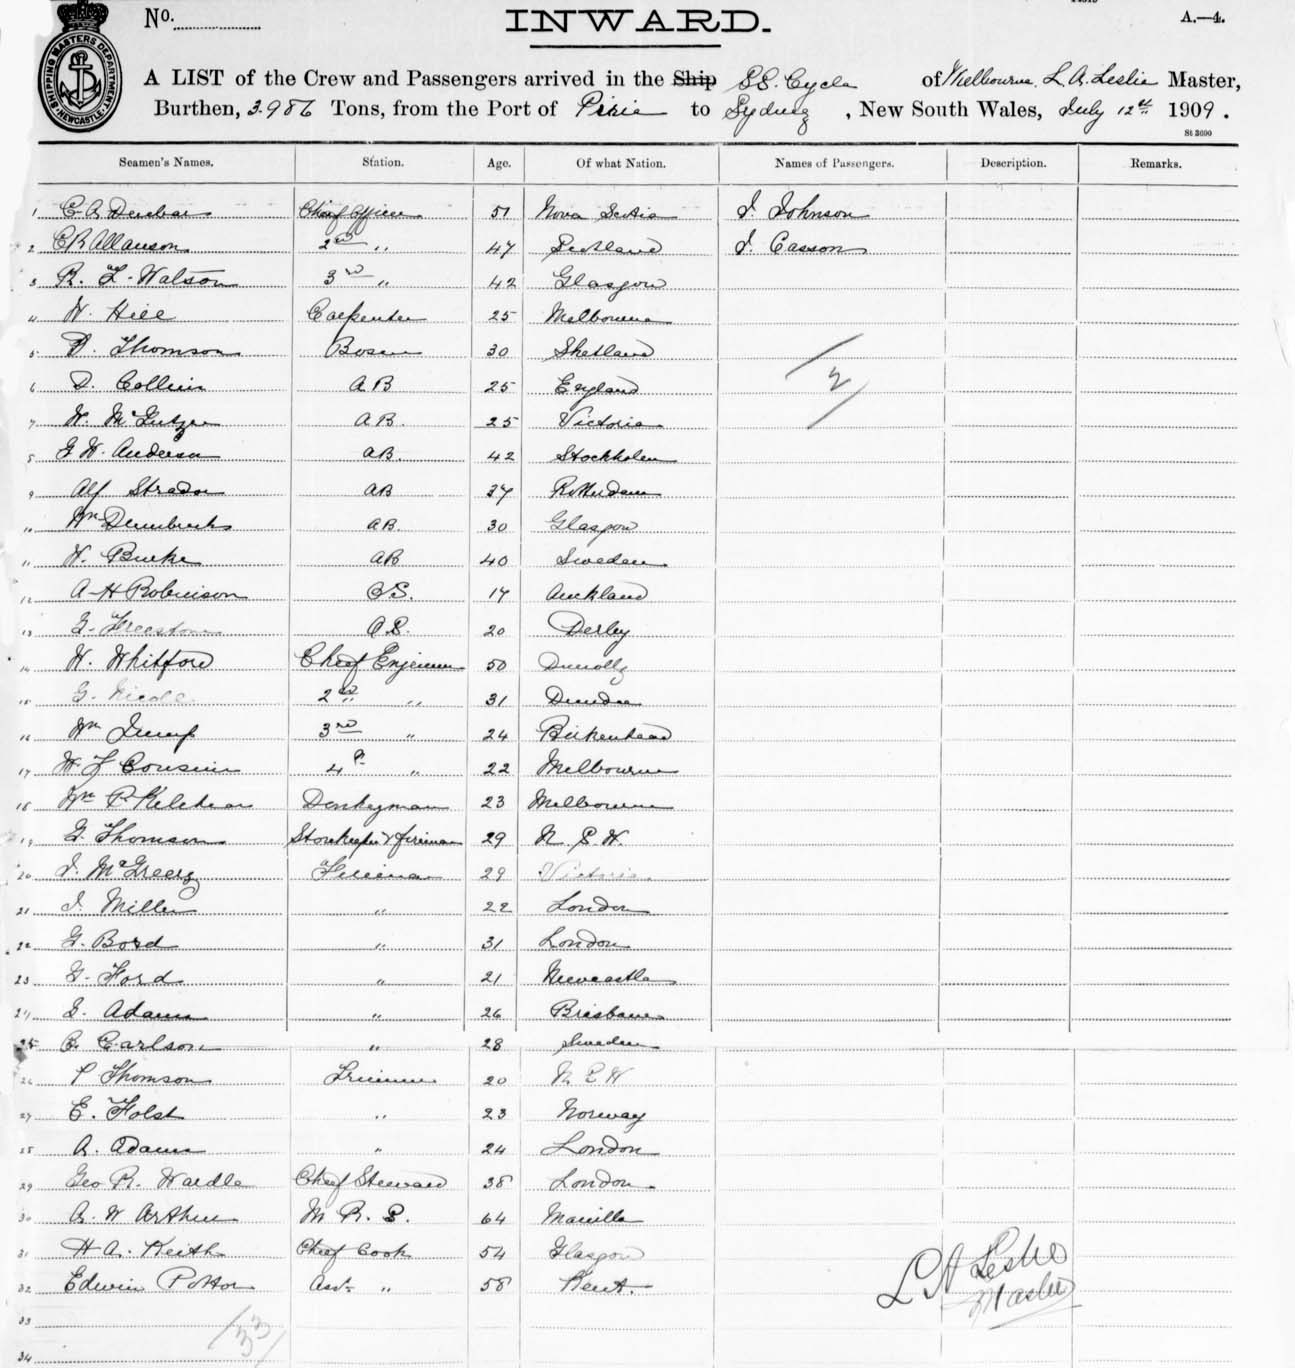 SHIPPING MASTERS DEPARTMENT
NEWCASTLE
No.
INWARD.
A.—4.
A LIST of the Crew and Passengers arrived in the Ship S.S. Cycle of Melbourne, L. A. Leslie Master,
Burthen, 3.986 Tons, from the Port of Pirie to Sydney, New South Wales, July 12th 1909.
St 3690
Seamen's Names. Station. Age. Of what Nation. Names of Passengers. Description. Remarks.
1 C. A Dunbar Chief Officer 51 Nova Scotia J. Johnson
2 C R Allanson 2nd " 47 Scotland J. Casson
3 R. L. Watson 3rd " 42 Glasgow
4 W. Hill Carpenter 25 Melbourne
5 Thomson Bosun 30 Shetland
2
6 Collins A B 25 England
7 W. A B. 25 Victoria
8 G W. Anderson A B. 42 Stockholm
9 Alf AB 37 Rotterdam
10 Wm AB 30 Glasgow
11 W. Burke AB 40 Sweden
12 A H Robinson O S. 17 Auckland
13 G. Freestone O.S. 20 Derby
14 W. Whitford Chief Engineer 50 Dunolly
15 G. Nicoll 2nd " 31 Dundee
16 Wm Jump 3rd " 24 Birkenhead
17 W. J Cousin 4th " 22 Melbourne
18 Wm P. Donkeyman 23 Melbourne
19 G. Thomson Storekeeper & fireman 29 N. S. W.
20 J. McGreery Fireman 29 Victoria
21 J. Miller " 22 London
22 G. Bord " 31 London
23 G. Ford " 21 Newcastle
24 Adams " 26 Brisbane
25 C. Carlson " 28 Sweden
26 P Thomson Trimmer 20 N S W
27 E. Holst " 23 Norway
28 A. Adams " 24 London
29 Geo R. Wardle Chief Steward 38 London
30 A. W Arthur M. R. S. 64 Manilla
31 H A. Keith Chief Cook 54 Glasgow
32 Edwin Potton Asst " 58 Kent.
L A Leslie
Master
33
33
34